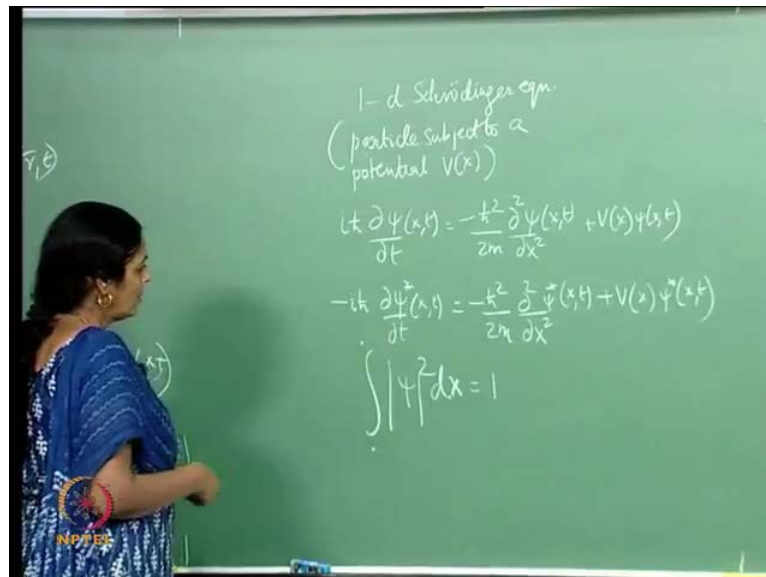 1-d Schrödinger eqn.
(particle subject to a
potential V(x))
r, t)
iħ ∂ψ(x,t)/∂t = -ħ²/2m ∂²ψ(x,t)/∂x² + V(x)ψ(x,t)
-iħ ∂ψ*(x,t)/∂t = -ħ²/2m ∂²ψ*(x,t)/∂x² + V(x)ψ*(x,t)
∫|ψ|²dx = 1
NPTEL